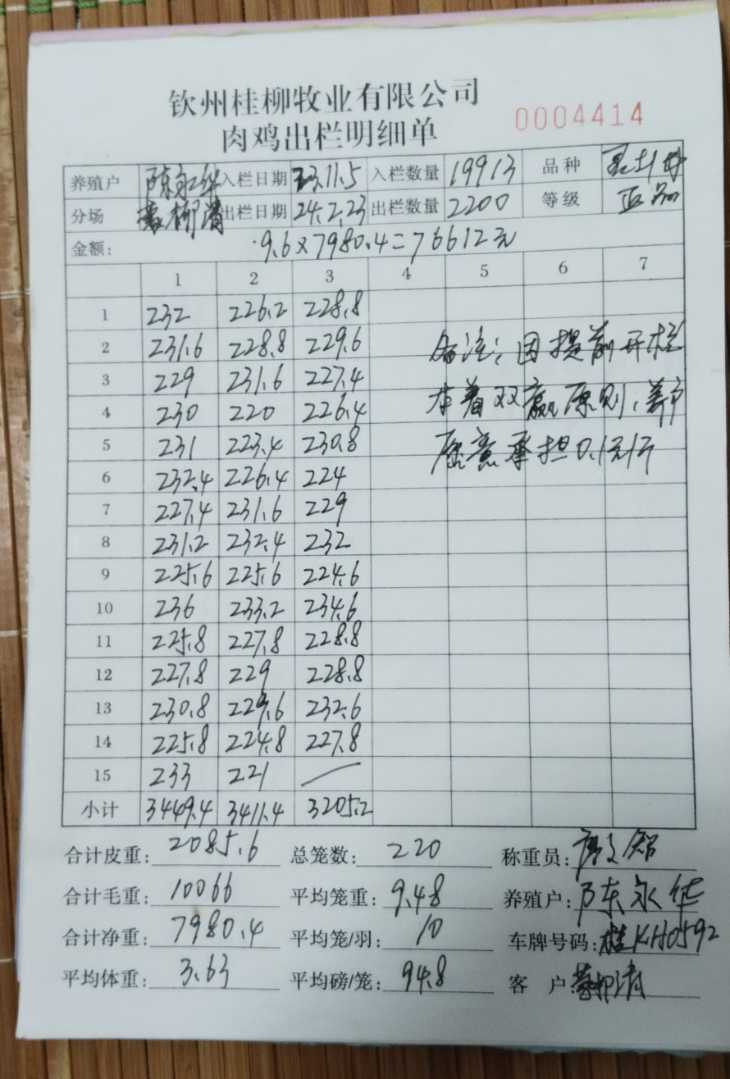 钦州桂柳牧业有限公司
肉鸡出栏明细单
0004414
养殖户 陈永华 入栏日期 23.11.5 入栏数量 19913 品种
分场 出栏日期 24.2.23 出栏数量 2200 等级 正品
金额: 9.6×7980.4=76612元
1 2 3 4 5 6 7
1 232 226.2 228.8
2 231.6 228.8 229.6
备注: 因提前开栏
3 229 231.6 227.4
4 230 220 226.4
本着双赢原则,养户
5 231 223.4 230.8
愿意承担0.1元/斤
6 232.4 226.4 224
7 227.4 231.6 229
8 231.2 232.4 232
9 225.6 225.6 224.6
10 236 233.2 234.6
11 225.8 227.8 228.8
12 227.8 229 228.8
13 230.8 229.6 232.6
14 225.8 224.8 227.8
15 233 221
小计 3449.4 3411.4 3205.2
合计皮重: 2085.6 总笼数: 220 称重员:
合计毛重: 10066 平均笼重: 9.48 养殖户: 陈永华
合计净重: 7980.4 平均笼/羽: 10 车牌号码: 桂KH0592
平均体重: 3.63 平均磅/笼: 94.8 客 户: